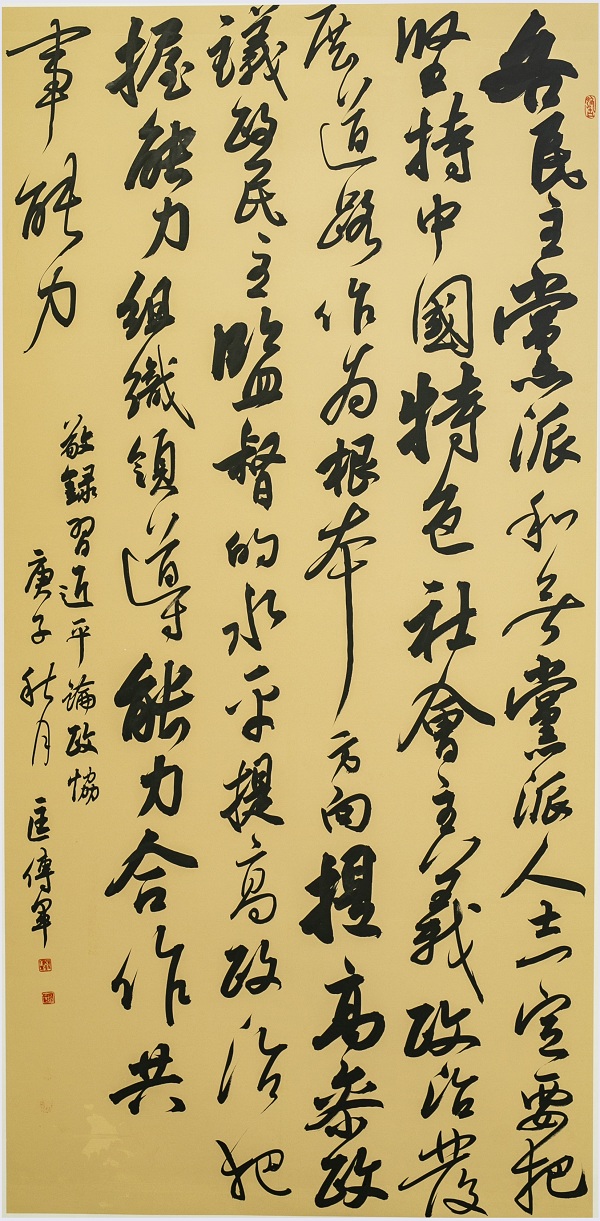 各民主黨派和无黨派人士一定要把
坚持中國特色社會主義政治發
展道路作为根本方向提高參政
議政民主監督的水平提高政治把
握能力組織領導能力合作共
事能力
敬録習近平論政協
庚子秋月 匡